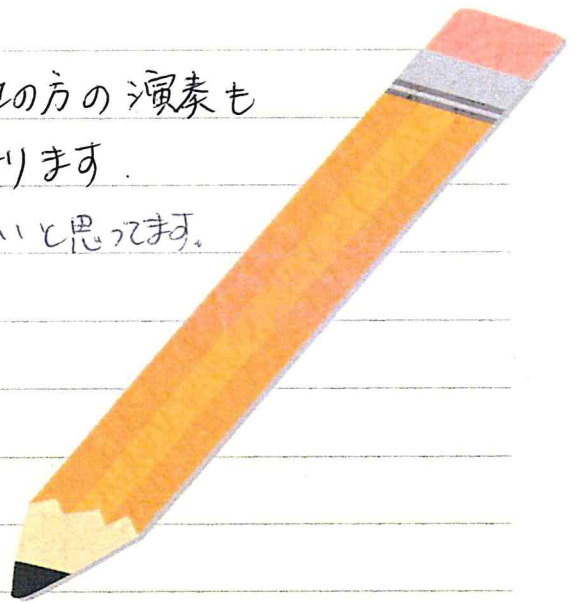 の方の演奏も
ります.
いと思ってます。